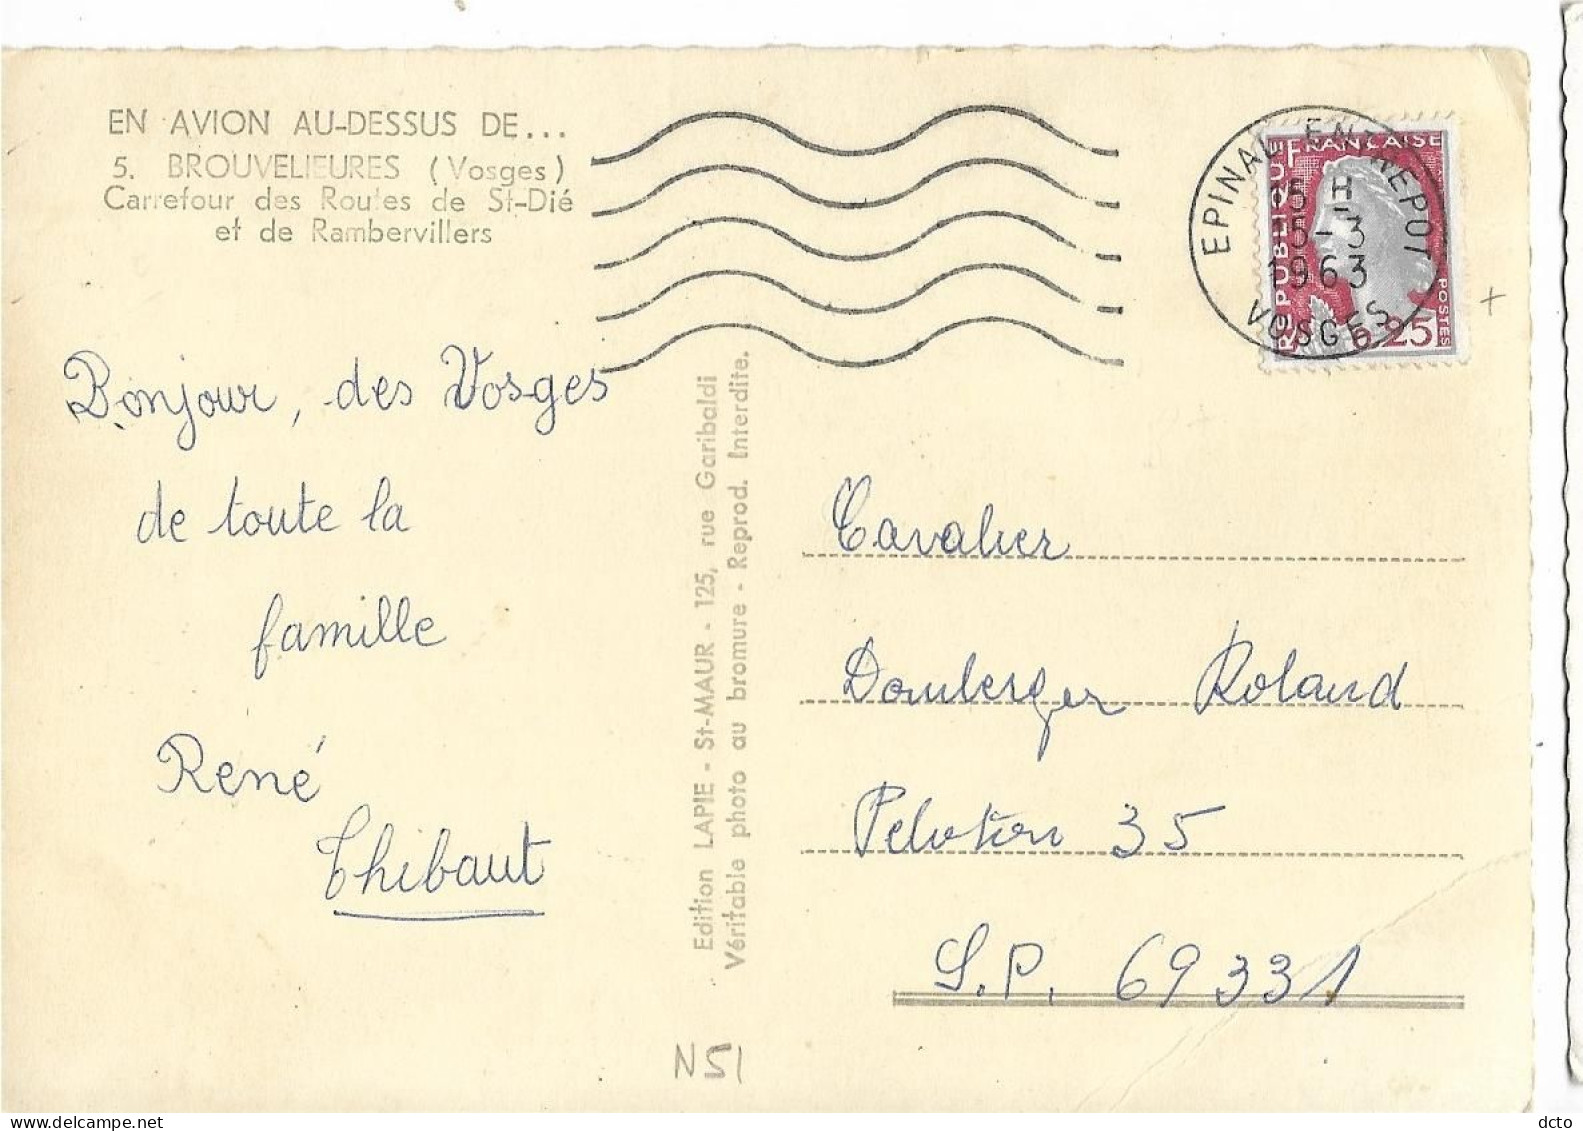 EN AVION AU-DESSUS DE...
5. BROUVELIEURES (Vosges)
Carrefour des Routes de St-Dié
et de Rambervillers
Bonjour, des Vosges
de toute la
famille
René
Thibaut
Edition LAPIE - St-MAUR - 125, rue Garibaldi
Véritable photo au bromure - Reprod. Interdite.
EPINAL ENTREPOT
15 H
15-3
1963
VOSGES
REPUBLIQUE FRANÇAISE
POSTES
0,25
Cavalier
Domberger Roland
Peloton 35
S.P. 69331
N51
dcto